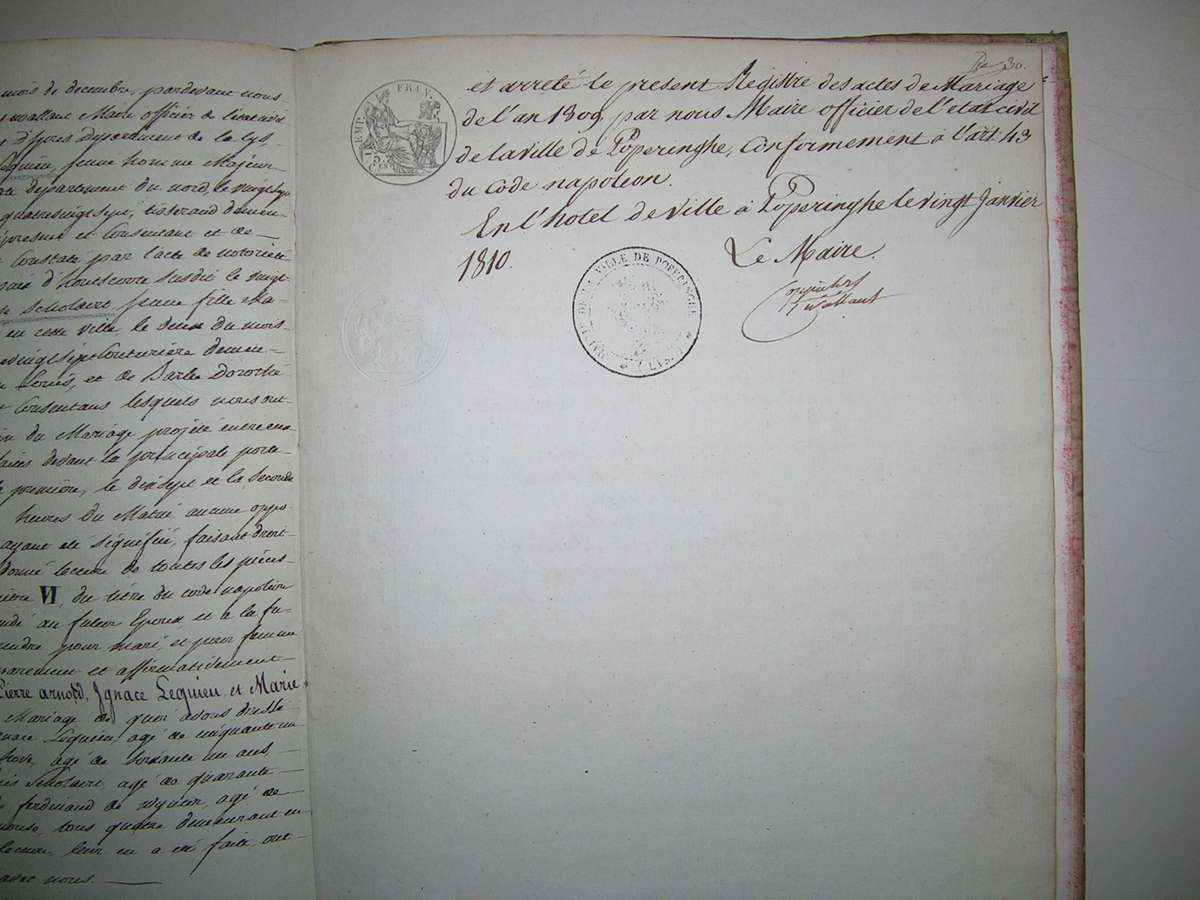 mois de decembre, pardevant nous
Maire officier de l'état civil
d'Ypres Departement de la Lys,
Lequieu, jeune homme Majeur
departement du nord, le vingt sept
quatrevingt sept, tisserand demeu-
present et Consentant et de
Constaté par l'acte de notoriété
d'houtscoote susdit le vingt
Scholaire, jeune fille Ma-
en cette ville le deux du mois
vingt sept Couturière demeu-
Louis, et de Barbe Dorothé
Consentans lesquels nous ont
du Mariage projeté entre eux
faites devant la principale porte
premiere, le dix sept et la seconde
heures du Matin aucune oppo-
ayant été signifiée, faisant droit
donné lecture de toutes les pièces
VI, du titre du code napoléon
au futur Epoux et a la fu-
prendre pour mari, et pour femme
et affirmativement
Pierre arnold, Ignace Lequieu, et Marie
Mariage de quoi avons dressé
Ignace Lequieu, agé de cinquante un
agé de soixante un ans,
Scholaire, agé de quarante
ferdinand de agé de
tous quatre demeurant en
lecture, leur en a été faite, ont
avec nous.
30.
EMP. FRAN.
et arreté le present Registre des actes de Mariage
de l'an 1809 par nous Maire officier de l'etat civil
de la Ville de Poperinghe, Conformement à l'art 43
du Code napoleon.
En l'hotel de Ville à Poperinghe le vingt Janvier
1810.
Le Maire.
DE LA VILLE DE POPERINGHE
LYS